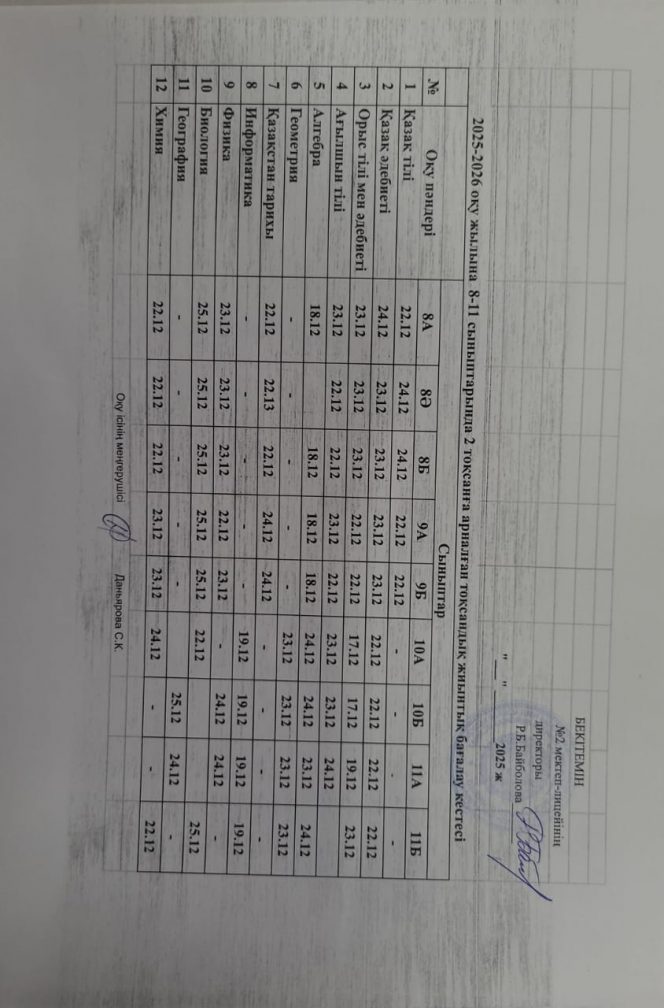 БЕКІТЕМІН
№2 мектеп-лицейінің
директоры
Р.Б.Байболова
"___" 2025 ж
2025-2026 оқу жылына 8-11 сыныптарында 2 тоқсанға арналған тоқсандық жиынтық бағалау кестесі
№ Оқу пәндері Сыныптар
8А 8Ә 8Б 9А 9Б 10А 10Б 11А 11Б
1 Қазақ тілі 22.12 24.12 24.12 22.12 22.12 - - - -
2 Қазақ әдебиеті 24.12 23.12 23.12 23.12 23.12 22.12 22.12 22.12 22.12
3 Орыс тілі мен әдебиеті 23.12 23.12 23.12 22.12 22.12 17.12 17.12 19.12 23.12
4 Ағылшын тілі 23.12 22.12 22.12 23.12 22.12 23.12 23.12 24.12
5 Алгебра 18.12 18.12 18.12 18.12 24.12 24.12 23.12 24.12
6 Геометрия - - - - - 23.12 23.12 23.12 23.12
7 Қазақстан тарихы 22.12 22.13 22.12 24.12 24.12 - - - -
8 Информатика - - - - - 19.12 19.12 19.12 19.12
9 Физика 23.12 23.12 23.12 22.12 23.12 - 24.12 24.12 -
10 Биология 25.12 25.12 25.12 25.12 25.12 22.12 25.12
11 География - - - - - 25.12 24.12 -
12 Химия 22.12 22.12 22.12 23.12 23.12 24.12 - - 22.12
Оқу ісінің меңгерушісі Даньярова С.К.